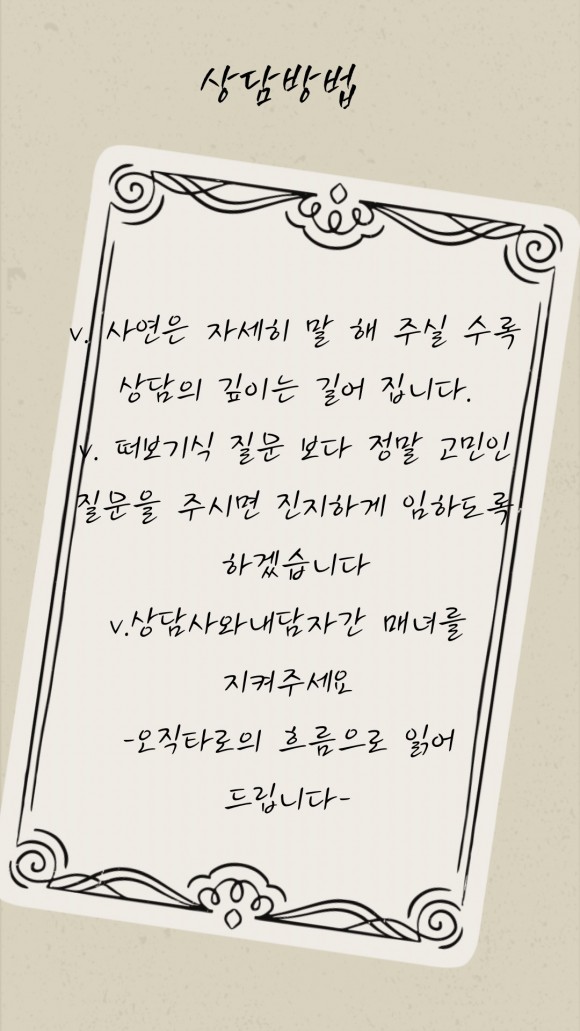 상담방법
v. 사연은 자세히 말 해 주실 수록
상담의 깊이는 길어 집니다.
v. 떠보기식 질문 보다 정말 고민인
질문을 주시면 진지하게 임하도록
하겠습니다
v.상담사와내담자간 매녀를
지켜주세요
-오직타로의 흐름으로 읽어
드립니다-